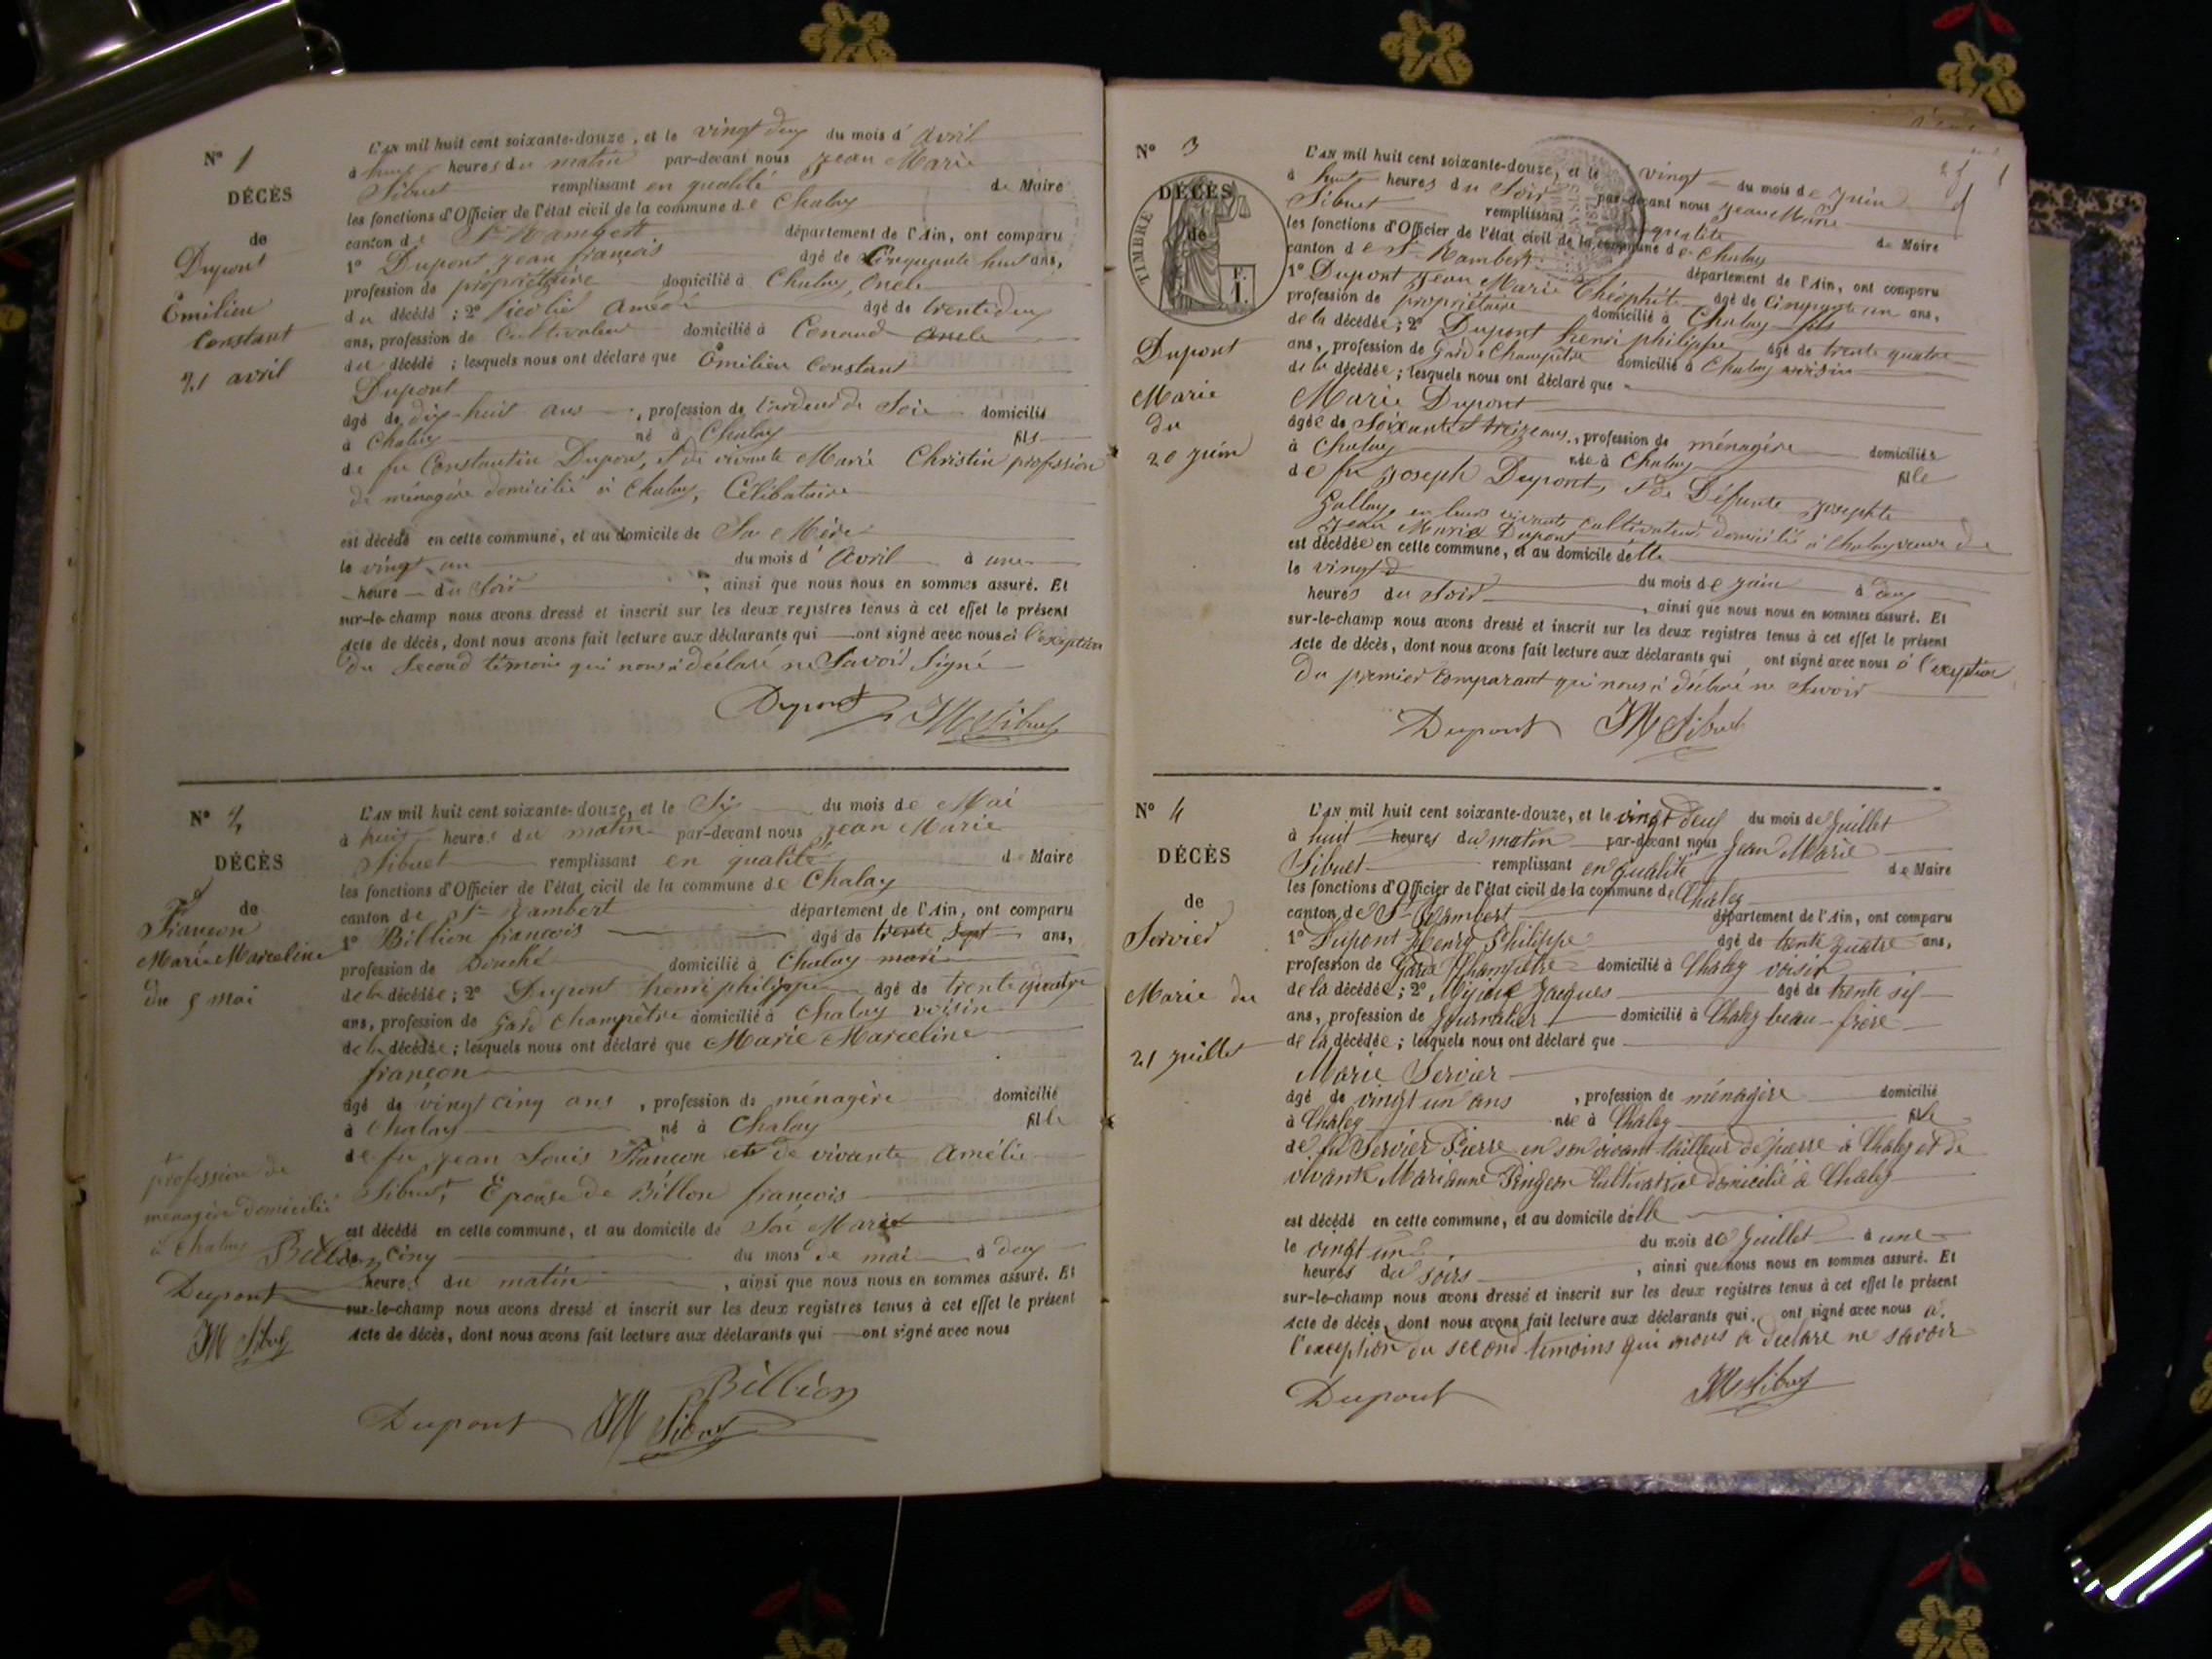 N° 1
DÉCÈS
de
Dupont
Émilien
Constant
21 avril
L'AN mil huit cent soixante-douze, et le vingt deux du mois d'avril
à huit heures du matin par-devant nous Jean Marie
Sibuet remplissant en qualité de Maire
les fonctions d'Officier de l'état civil de la commune de Chaley
canton de St Rambert département de l'Ain, ont comparu
1° Dupont jean françois âgé de Cinquante huit ans,
profession de propriétaire domicilié à Chaley, oncle
du décédé ; 2° Amédé âgé de trente deux
ans, profession de Cultivateur domicilié à Conand oncle
du décédé ; lesquels nous ont déclaré que Émilien Constant
Dupont
âgé de dix-huit ans, profession de Cardeur de Soie domicilié
à Chaley né à Chaley fils
de feu Constantin Dupont, et de vivante Marie Christin profession
de ménagère domicilié à Chaley, Célibataire
est décédé en cette commune, et au domicile de Sa Mère
le vingt un du mois d'Avril à une
heure du Soir, ainsi que nous nous en sommes assuré. Et
sur-le-champ nous avons dressé et inscrit sur les deux registres tenus à cet effet le présent
Acte de décès, dont nous avons fait lecture aux déclarants qui ont signé avec nous à l'exeption
du Second témoin qui nous à déclaré ne Savoir Signé
Dupont JM Sibuet
N° 2
DÉCÈS
de
Françon
Marie Marceline
du 5 mai
L'AN mil huit cent soixante-douze, et le Six du mois de Mai
à huit heures du matin par-devant nous Jean Marie
Sibuet remplissant en qualité de Maire
les fonctions d'Officier de l'état civil de la commune de Chaley
canton de St Rambert département de l'Ain, ont comparu
1° Billion françois âgé de trente sept ans,
profession de Bouché domicilié à Chaley mari
de la décédée ; 2° Dupont henri philippe âgé de trente quatre
ans, profession de Gard Champêtre domicilié à Chaley voisin
de la décédée ; lesquels nous ont déclaré que Marie Marceline
françon
âgé de vingt cinq ans, profession de ménagère domicilié
à Chaley né à Chaley fille
de feu Jean Louis Françon et de vivante Amélie
Sibuet, Épouse de Billon françois
est décédé en cette commune, et au domicile de Son Marie
le cinq du mois de mai à deux
heures du matin, ainsi que nous nous en sommes assuré. Et
sur-le-champ nous avons dressé et inscrit sur les deux registres tenus à cet effet le présent
Acte de décès, dont nous avons fait lecture aux déclarants qui ont signé avec nous
profession de
menagère domicilié
à Chaley Billion
Dupont
JM Sibuet
Billion
Dupont JM Sibuet
N° 3
DÉCÈS
de
TIMBRE
Dupont
Marie
du
20 juin
L'AN mil huit cent soixante-douze, et le vingt du mois de juin
à huit heures du Soir par-devant nous Jean Marie
Sibuet remplissant qualité de Maire
les fonctions d'Officier de l'état civil de la commune de Chaley
canton de St Rambert département de l'Ain, ont comparu
1° Dupont Jean Marie Théophile âgé de Cinquante un ans,
profession de propriétaire domicilié à Chaley fils
de la décédée ; 2° Dupont henri philippe âgé de trente quatre
ans, profession de Garde Champêtre domicilié à Chaley voisin
de la décédée ; lesquels nous ont déclaré que
Marie Dupont
âgée de Soixante et treize ans, profession de ménagère domiciliée
à Chaley née à Chaley fille
de feu Joseph Dupont, et de Défunte Josephte
en leurs vivants Cultivateurs domicilié à Chaley veuve de
Jean Marie Dupont
est décédée en cette commune, et au domicile d'elle
le vingt du mois de juin à deux
heures du Soir, ainsi que nous nous en sommes assuré. Et
sur-le-champ nous avons dressé et inscrit sur les deux registres tenus à cet effet le présent
Acte de décès, dont nous avons fait lecture aux déclarants qui ont signé avec nous à l'exeption
du premier Comparant qui nous à déclaré ne Savoir
Dupont JM Sibuet
N° 4
DÉCÈS
de
Servier
Marie du
21 juillet
L'AN mil huit cent soixante-douze, et le vingt deux du mois de Juillet
à huit heures du matin par-devant nous Jean Marie
Sibuet remplissant en qualité de Maire
les fonctions d'Officier de l'état civil de la commune de Chaley
canton de St Rambert département de l'Ain, ont comparu
1° Dupont Henry Philippe âgé de trente quatre ans,
profession de Garde Champêtre domicilié à Chaley voisin
de la décédée ; 2° Jacques âgé de trente six
ans, profession de Journalier domicilié à Chaley beau-frère
de la décédée ; lesquels nous ont déclaré que
Marie Servier
âgé de vingt un ans, profession de ménagère domicilié
à Chaley née à Chaley fille
de feu Servier Pierre en son vivant tailleur de pierre à Chaley et de
vivante Marianne Pingeon Cultivatrice domicilié à Chaley
est décédé en cette commune, et au domicile d'elle
le vingt un du mois de Juillet à une
heures du soirs, ainsi que nous nous en sommes assuré. Et
sur-le-champ nous avons dressé et inscrit sur les deux registres tenus à cet effet le présent
Acte de décès, dont nous avons fait lecture aux déclarants qui ont signé avec nous à
l'exception du second témoins qui nous a déclaré ne savoir
Dupont JM Sibuet